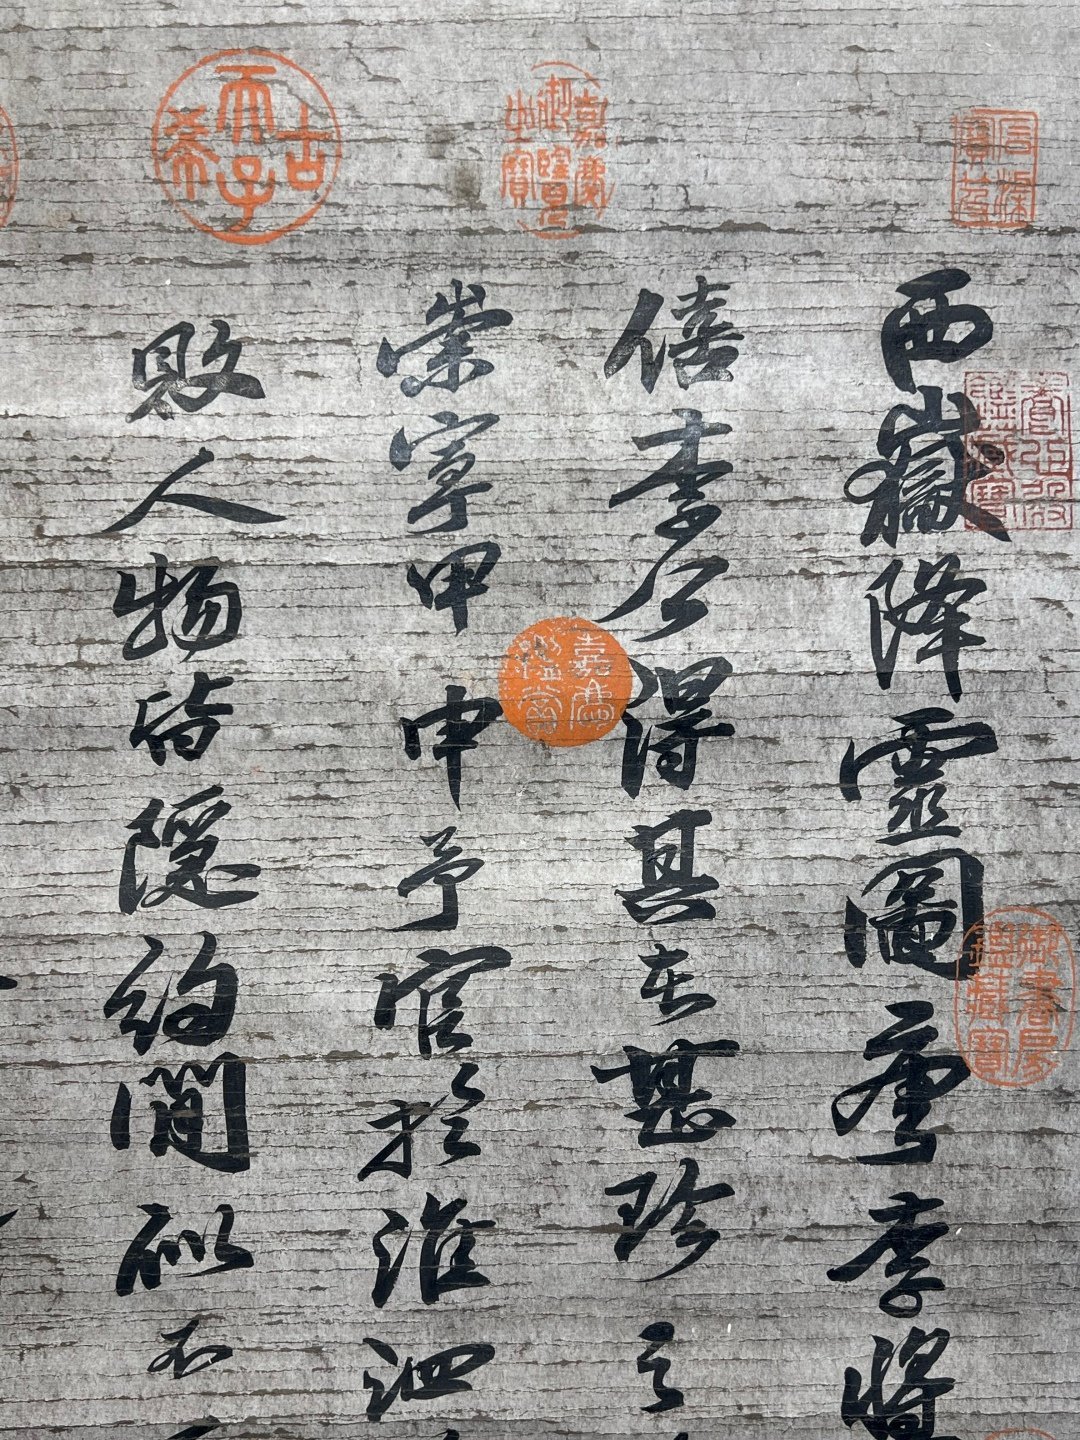 養心殿鑑藏寶
御書房鑑藏寶
西嶽降靈圖唐李將
僖李公得其本甚珍之
嘉慶御覽之寶
嘉慶鑑賞
崇寧甲申予官於淮泗
古希天子
敗人物皆隱約間似不